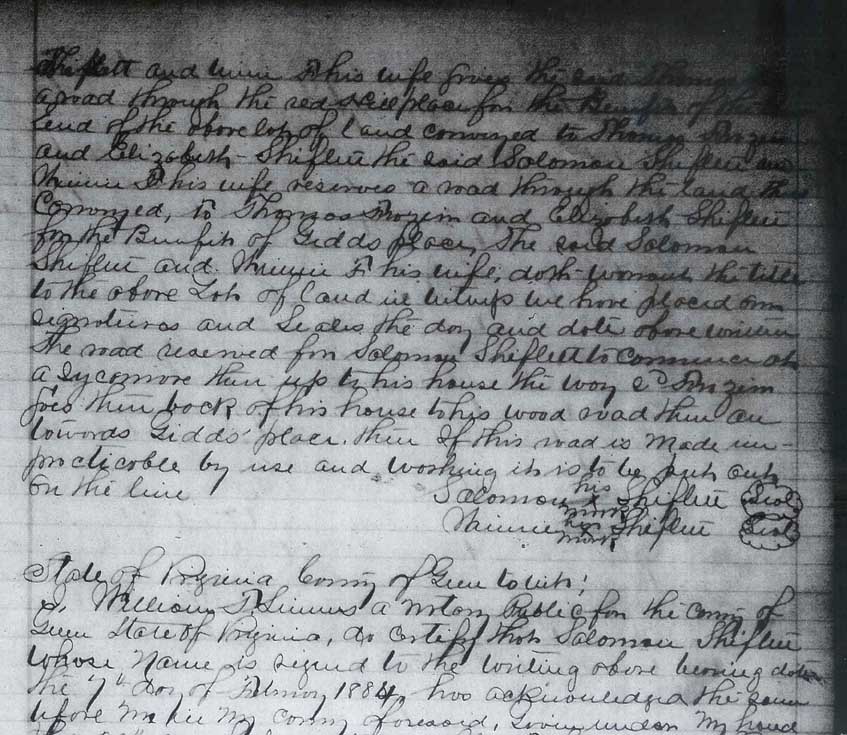 Shiflett and Minnie F his wife gives the said Thomas
a road through the red Hill place for the Benefit of the
Lend of the above Lot of land conveyed to Thomas Frazier
and Elizabeth Shiflett the said Solomon Shiflett and
Minnie F his wife reserves a road through the land this
Conveyed, to Thomas Frazier and Elizabeth Shiflett
for the Benefit of Gidds place, The said Solomon
Shiflett and Minnie F his wife, doth warrant the title
to the above Lot of land in witness we have placed our
signatures and Seales the day and date above written
The road reserved for Solomon Shiflett to commence at
a Sycamore then up to his house the way sd Frazier
goes then back of his house to his wood road then on
towards Gidds' place. then If this road is made un-
practicable by use and working it is to be put out
on the line
Solomon his x mark Shiflett Seal
Minnie her x mark Shiflett Seal
State of Virginia County of Green to wit;
I, William T. Simms a Notary Public for the county of
Green State of Virginia, do certify that Solomon Shiflett
whose Name is signed to the writing above bearing date
the 7th Day of February 1884, has acknowledged the same
before me in my county aforesaid, Given under my hand